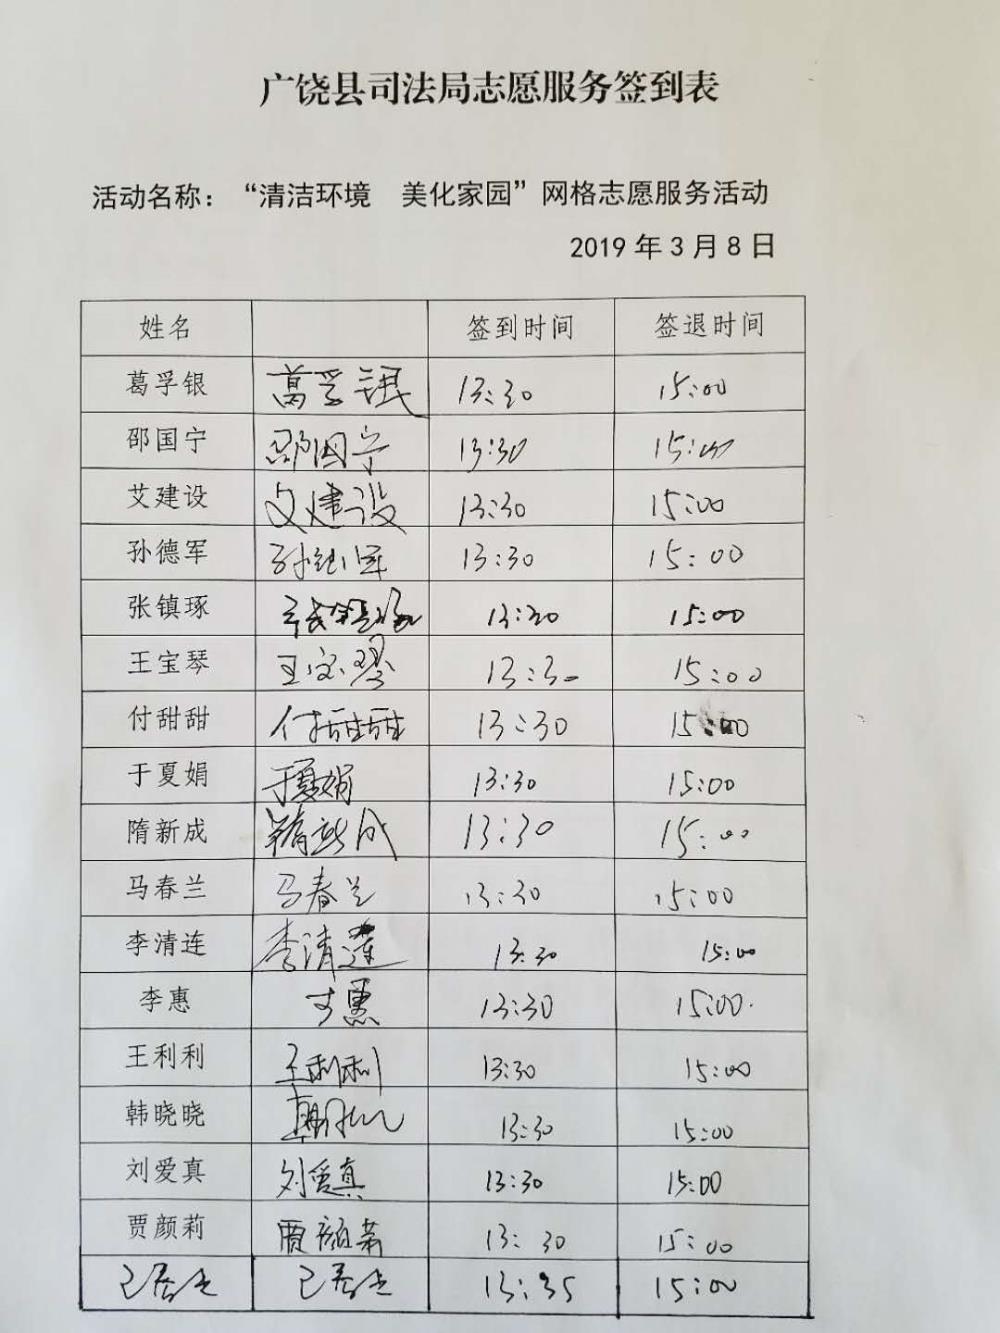 广饶县司法局志愿服务签到表
活动名称：“清洁环境　美化家园”网格志愿服务活动
2019 年 3 月 8 日
姓名 签到时间 签退时间
葛孚银 葛孚银 13:30 15:00
邵国宁 邵国宁 13:30 15:00
艾建设 艾建设 13:30 15:00
孙德军 孙德军 13:30 15:00
张镇琢 张镇琢 13:30 15:00
王宝琴 王宝琴 13:30 15:00
付甜甜 付甜甜 13:30 15:00
于夏娟 于夏娟 13:30 15:00
隋新成 隋新成 13:30 15:00
马春兰 马春兰 13:30 15:00
李清连 李清莲 13:30 15:00
李惠 李惠 13:30 15:00
王利利 王利利 13:30 15:00
韩晓晓 韩晓晓 13:30 15:00
刘爱真 刘爱真 13:30 15:00
贾颜莉 贾颜莉 13:30 15:00
13:35 15:00